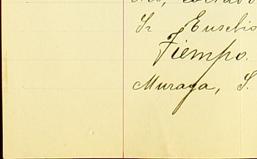 Sr Eusebio
Tiempo.
Muraga, S.